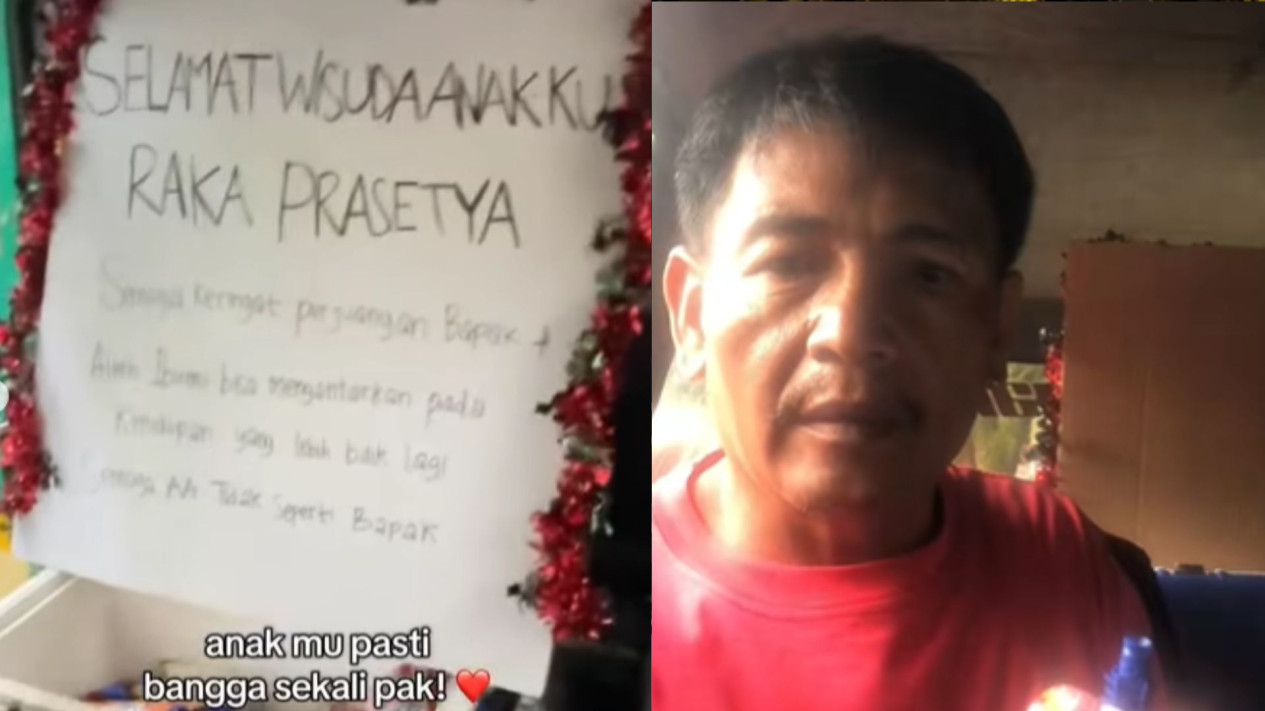 SELAMAT WISUDA ANAKKU
RAKA PRASETYA
Semoga keringat perjuangan Bapak +
Alm Ibumu bisa mengantarkan pada
Kehidupan yang lebih baik lagi
Semoga AA Tidak Seperti BAPAK
anak mu pasti
bangga sekali pak! ❤️